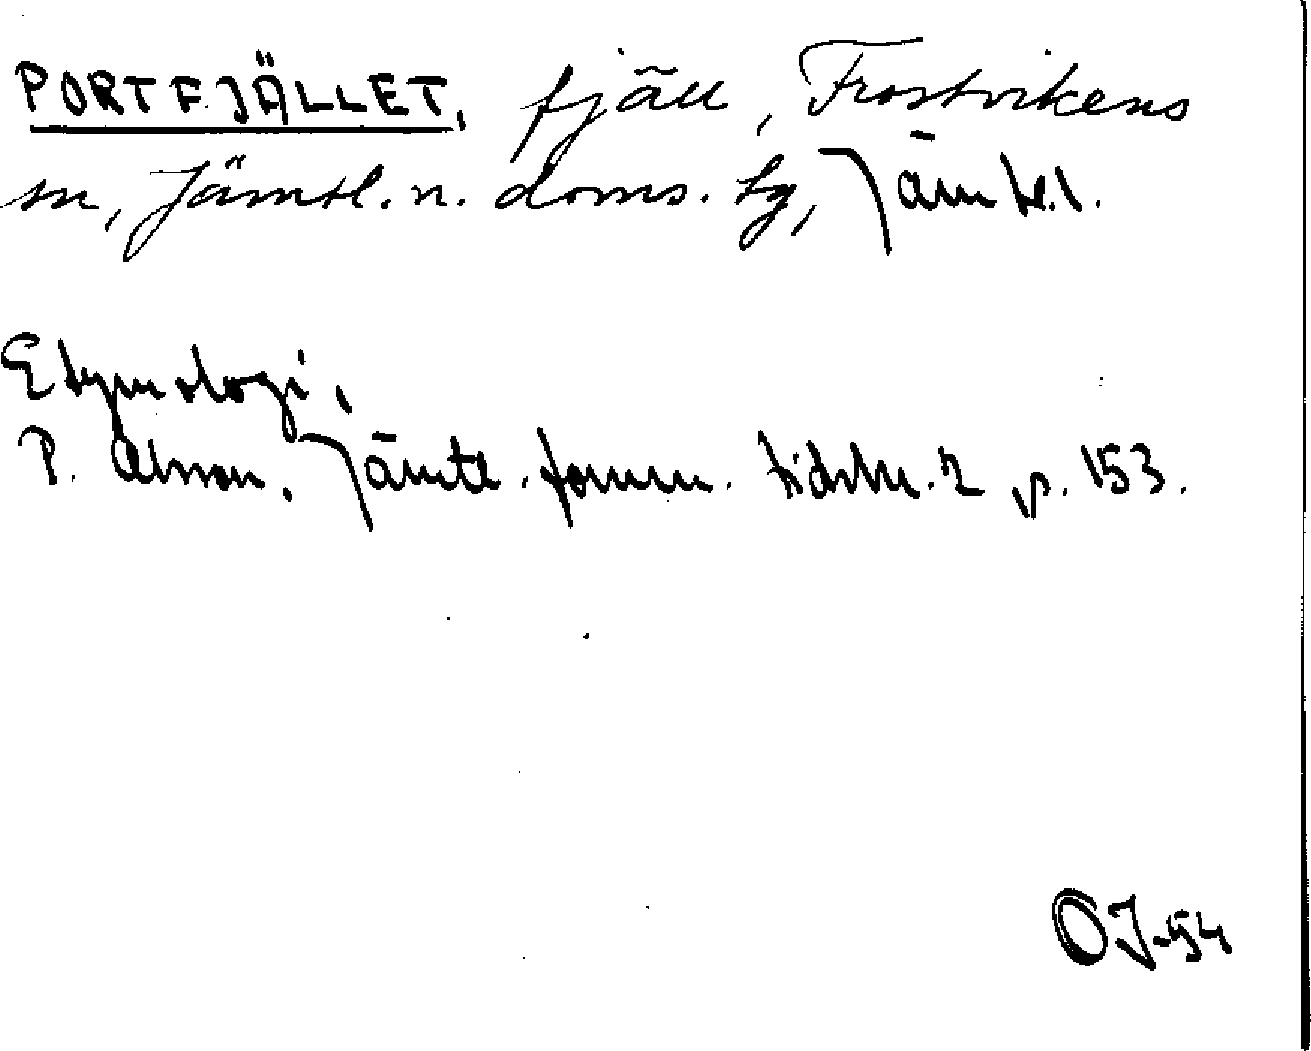 PORTFJÄLLET, fjäll, Frostvikens
sn, Jämtl. n. doms. tg, Jämtl.l.
Etymologi,
P. Olsson, Jämtl. fornm. tidskr. 2 p. 153.
OJ-54